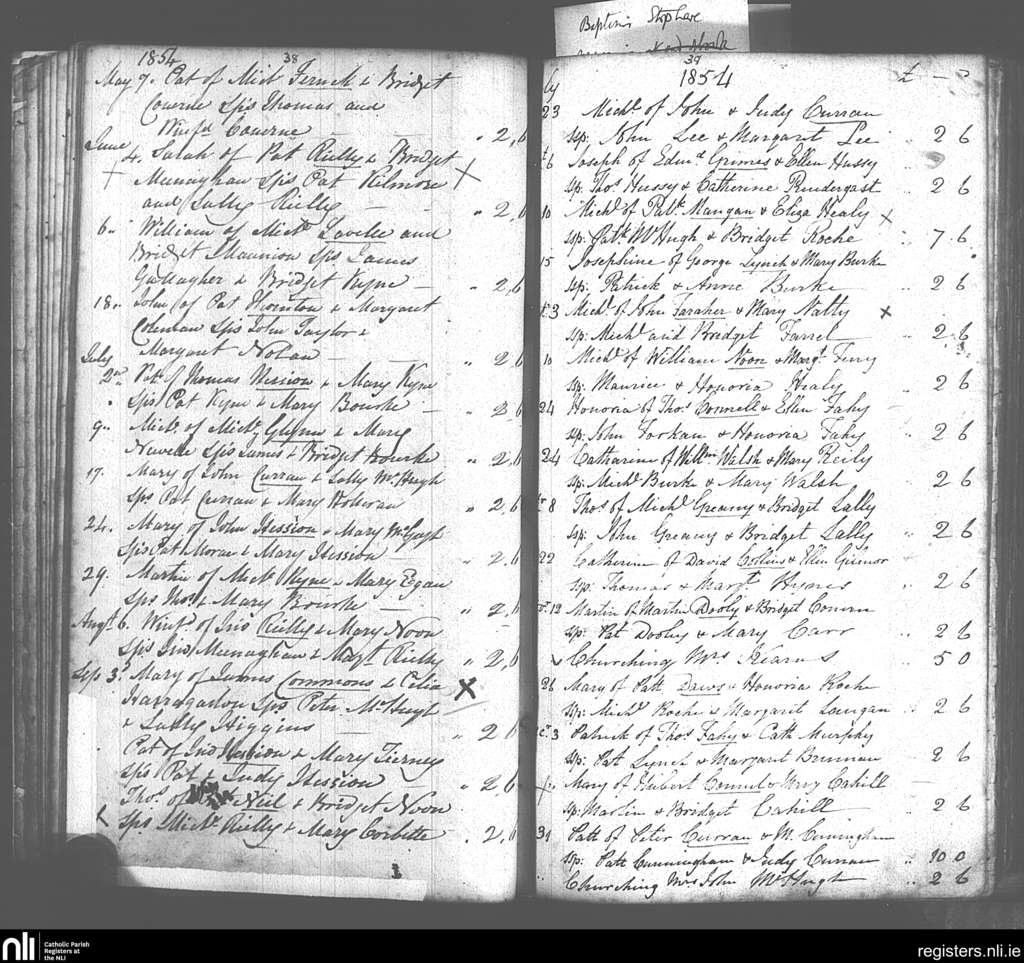 Baptism
38
1854
May 7. Pat of Mich Fernck & Bridget
Coverne Sps Thomas and
Winfd Coverne - 2,6
June
4. Sarah of Pat Rielly & Bridget
Munaghan Sps Pat Kilmore
and Sally Rielly - " 2,6
6. William of Michl Lavelle and
Bridget Mannion Sps James
Gallagher & Bridget Kyne - " 2,6
18. John of Pat Thornton & Margaret
Coleman Sps John Taylor &
Margaret Nolan - " 2 6
July
2nd Pat of Thomas Hession & Mary Kyne
Sps Pat Kyne & Mary Bourke - " 2 6
9. Michl of Michl Glynn & Mary
Sps James & Bridget Bourke " 2,6
17. Mary of John Curran & Sally McHugh
Sps Pat Curran & Mary " 2,6
24. Mary of John Hession & Mary
Sps Pat Moran & Mary Hession " 2,6
29. Martin of Mick Kyne & Mary Egan
Sps Thos & Mary Bourke - " 2,6
Augt 6. Winfd of Jno Rielly & Mary Noon
Sps Jno Munaghan & Magt Rielly " 2,6
Sps 3d Mary of James Commons & Celia X
Sps Peter McHugh
& Sally Higgins - " 2 6
Pat of Jno Hession & Mary Tierney
Sps Pat & Judy Hession - " 2,6
Thos of Neil & Bridget Noon
Sps Michl Rielly & Mary Corbette - . 2,6
39
1854
£
23 Michl of John & Judy Curran
sp: John Lee & Margaret Lee .. 2 6
6 Joseph of Edmd Grimes & Ellen Hussy
sp: Thos Hussy & Catherine Prendergast .. 2 6
10 Michl of Patk Mangan & Eliza Healy X
sp: Patk McHugh & Bridget Roche .. 7.6
15 Josephine of George Lynch & Mary Burke
sp: Patrick & Anne Burke .. 2 6
3 Michl of John Faraher & Mary Nally X
sp: Michl and Bridget Farrel .. 2.6
10 Michl of William Noon & Margt
sp: Maurice & Honoria Healy .. 2 6
24 Honoria of Thos Connell & Ellen Fahy
sp: John Forkan & Honoria Fahy .. 2 6
24 Catharine of Willm Walsh & Mary Reily
sp: Michl Burke & Mary Walsh .. 2 6
8 Thos of Michl Greany & Bridget Lally
sp: John Greany & Bridget Lally .. 2 6
22 Catherine of David Collins & Ellen
sp: Thomas & Margt Hynes .. 2 6
19 Martin of Martin Dooly & Bridget
sp: Pat Dooley & Mary Carr .. 2 6
Churching Mrs Kearns .. 5 0
26 Mary of Patt Daws & Honoria Roche
sp: Michl Roche & Margaret Langan .. 2 6
3 Patrick of Thos Fahy & Cath Murphy
sp: Pat Lynch & Margaret Brennan .. 2 6
Mary of Hubert Connel & Mary Cahill
sp: Martin & Bridget Cahill .. 2 6
31 Patt of Peter Curran & M. Cuningham
sp: Patt Cunningham & Judy Curran .. 10 0
Churching Mrs John McHugh .. 2 6
nli Catholic Parish
Registers at
the NLI
registers.nli.ie